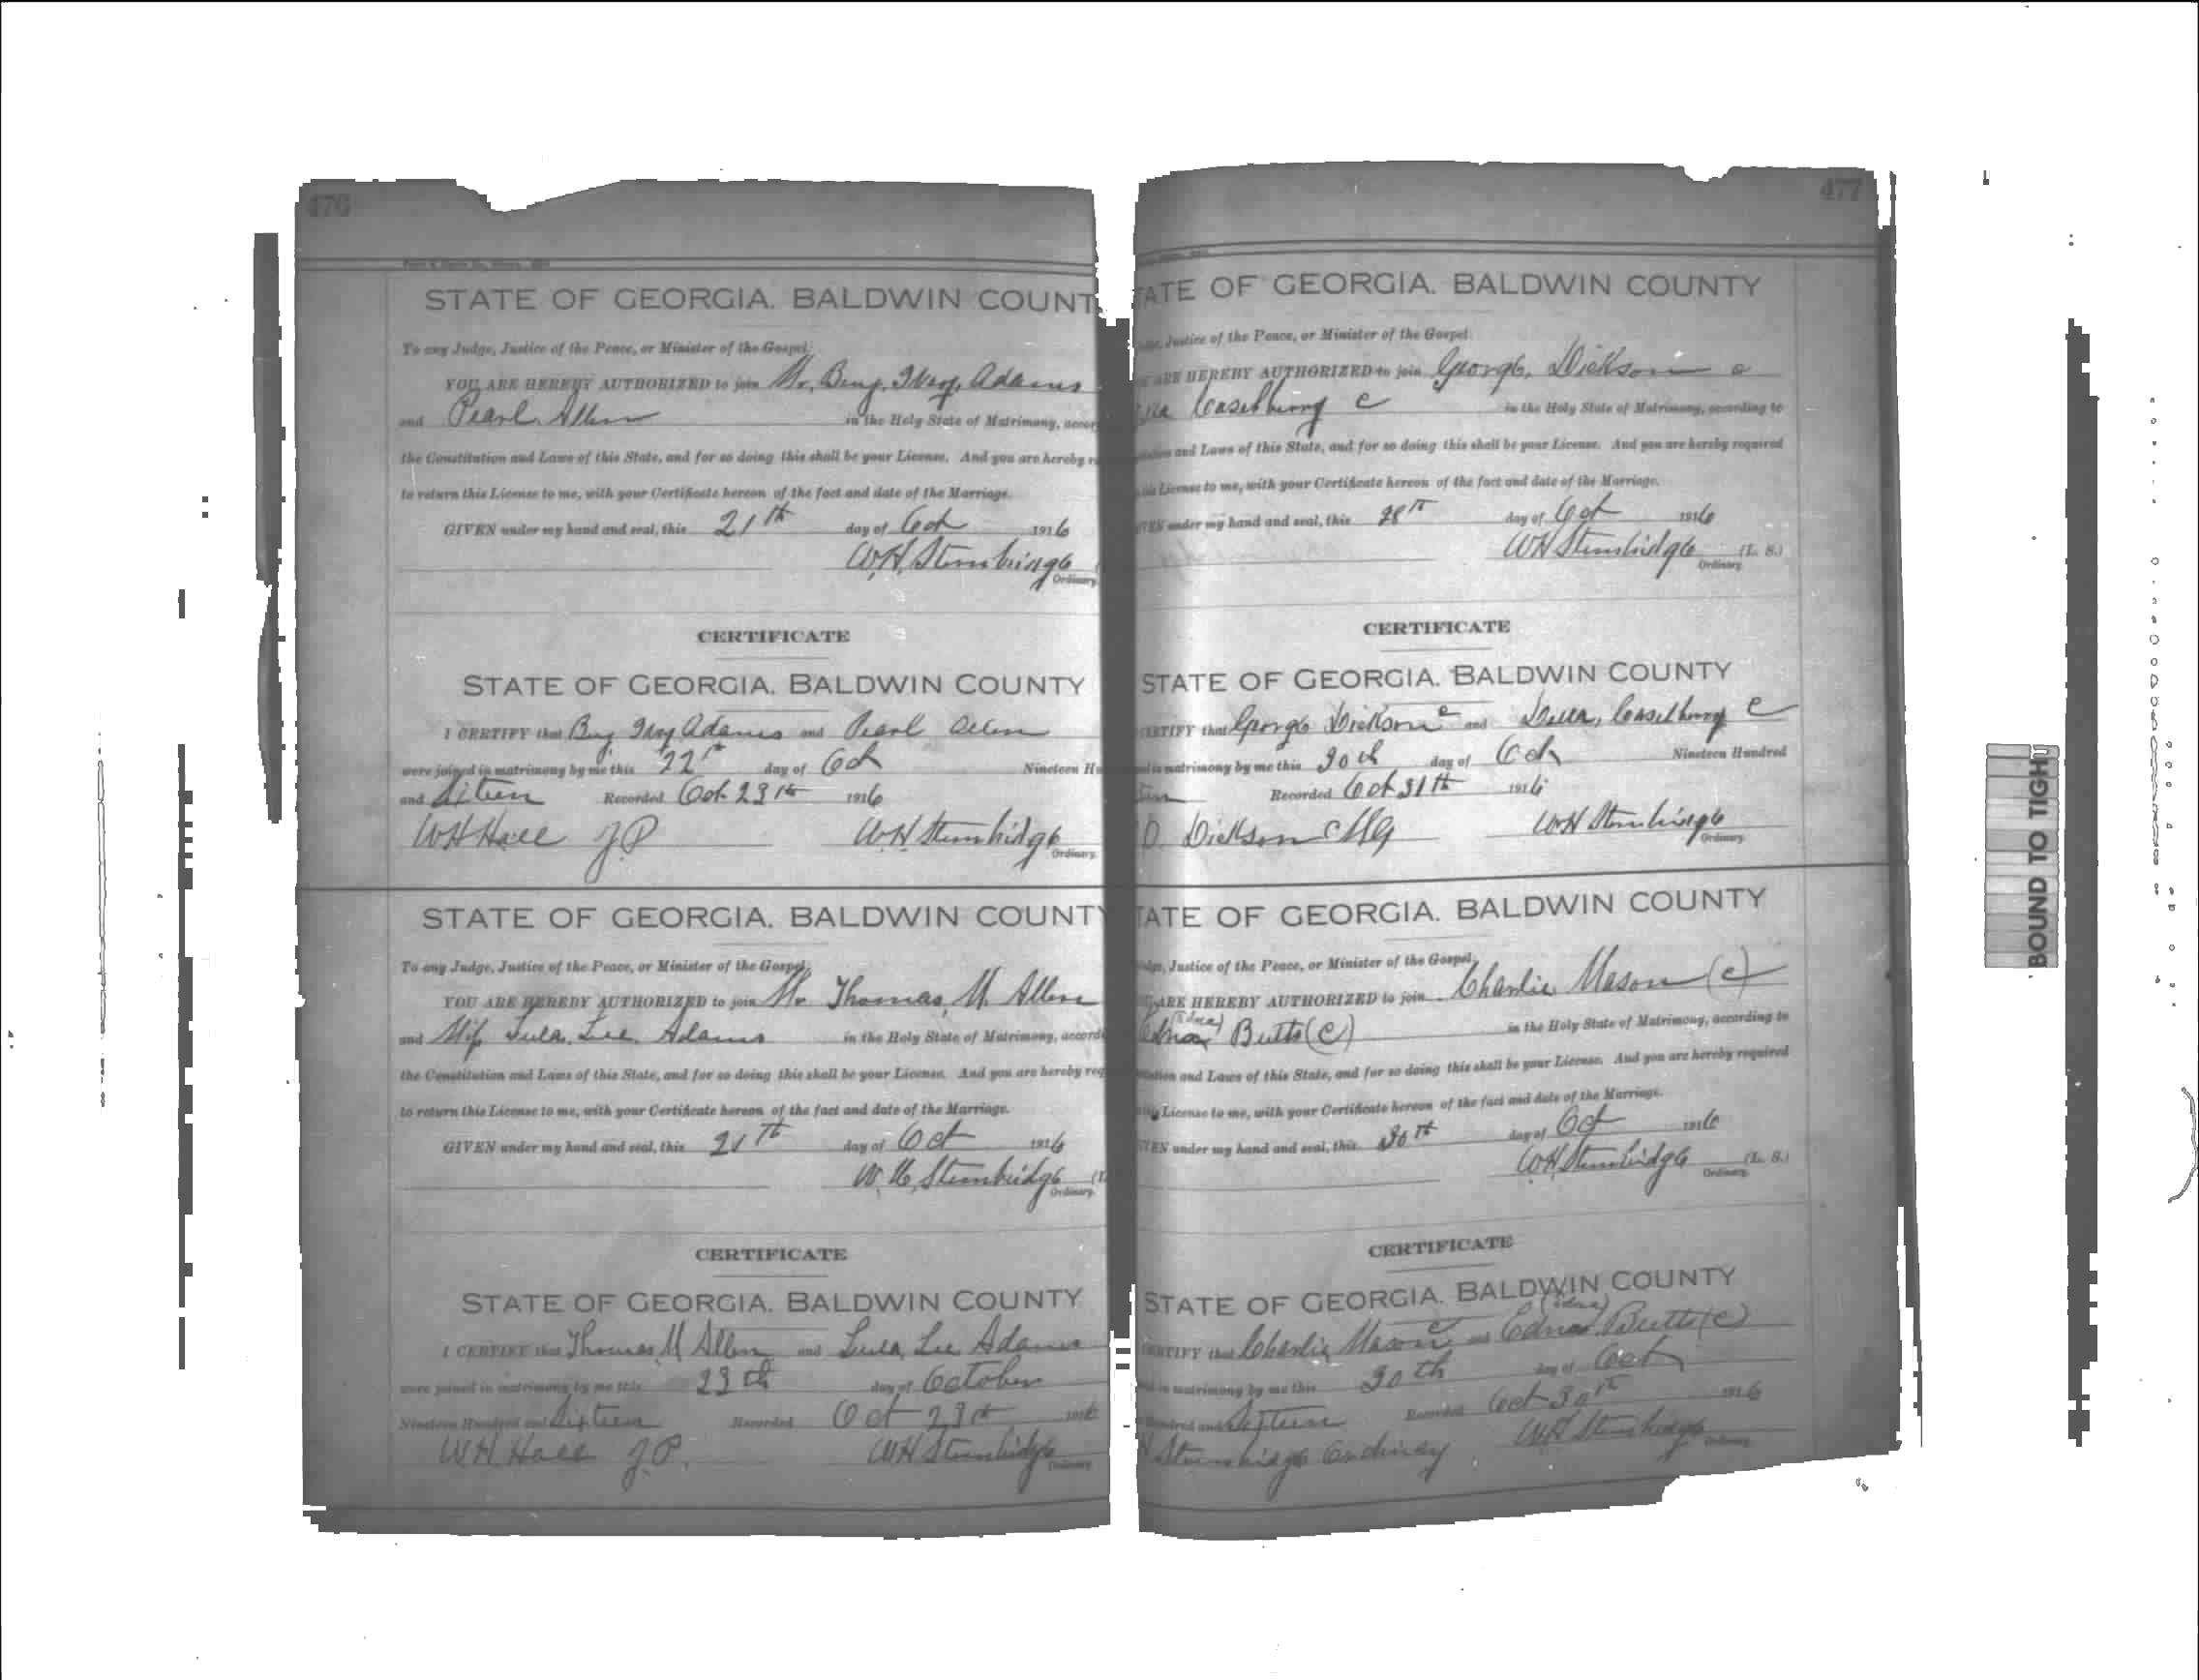 476
STATE OF GEORGIA. BALDWIN COUNT
To any Judge, Justice of the Peace, or Minister of the Gospel:
YOU ARE HEREBY AUTHORIZED to join Mr. Benj. Adams
and Pearl Allen in the Holy State of Matrimony, accor
the Constitution and Laws of this State, and for so doing this shall be your License. And you are hereby r
to return this License to me, with your Certificate hereon of the fact and date of the Marriage.
GIVEN under my hand and seal, this 21th day of Oct 1916
W.H. Stembridge
Ordinary
CERTIFICATE
STATE OF GEORGIA. BALDWIN COUNTY
I CERTIFY that Adams and Pearl Allen
were joined in matrimony by me this 22 day of Oct Nineteen Hu
and Sixteen Recorded Oct 23 1916
WH Hall J.P. W.H. Stembridge
Ordinary
STATE OF GEORGIA. BALDWIN COUNTY
To any Judge, Justice of the Peace, or Minister of the Gospel:
YOU ARE HEREBY AUTHORIZED to join Mr Thomas, M. Allen
and Miss Lula, Lee, Adams in the Holy State of Matrimony, accordi
the Constitution and Laws of this State, and for so doing this shall be your License. And you are hereby req
to return this License to me, with your Certificate hereon of the fact and date of the Marriage.
GIVEN under my hand and seal, this 21th day of Oct 1916
W.H. Stembridge (L
Ordinary
CERTIFICATE
STATE OF GEORGIA. BALDWIN COUNTY
I CERTIFY that Thomas, M Allen and Lula, Lee Adams
were joined in matrimony by me this 23th day of October
Nineteen Hundred and Sixteen Recorded Oct 23th 1916
WH Hall J.P. WH Stembridge
Ordinary
477
TATE OF GEORGIA. BALDWIN COUNTY
Justice of the Peace, or Minister of the Gospel:
ARE HEREBY AUTHORIZED to join George, Dickson c
Caselberry c in the Holy State of Matrimony, according to
and Laws of this State, and for so doing this shall be your License. And you are hereby required
License to me, with your Certificate hereon of the fact and date of the Marriage.
under my hand and seal, this 28th day of Oct 1916
WH Stembridge (L. S.)
Ordinary
CERTIFICATE
STATE OF GEORGIA. BALDWIN COUNTY
CERTIFY that George Dickson c and Caselberry c
in matrimony by me this 30th day of Oct Nineteen Hundred
Recorded Oct 31th 1916
D. Dickson MG WH Stembridge
Ordinary
TATE OF GEORGIA. BALDWIN COUNTY
Justice of the Peace, or Minister of the Gospel:
ARE HEREBY AUTHORIZED to join Charlie Mason (c)
(Edna)
Butts (c) in the Holy State of Matrimony, according to
and Laws of this State, and for so doing this shall be your License. And you are hereby required
License to me, with your Certificate hereon of the fact and date of the Marriage.
under my hand and seal, this 30th day of Oct 1916
W.H. Stembridge (L. S.)
Ordinary
CERTIFICATE
STATE OF GEORGIA. BALDWIN COUNTY
(Edna)
CERTIFY that Charlie, Mason c and Edna Butts (c)
in matrimony by me this 30th day of Oct
Hundred and Sixteen Recorded Oct 30th 1916
Stembridge Ordinary WH Stembridge
Ordinary
BOUND TO TIGHT